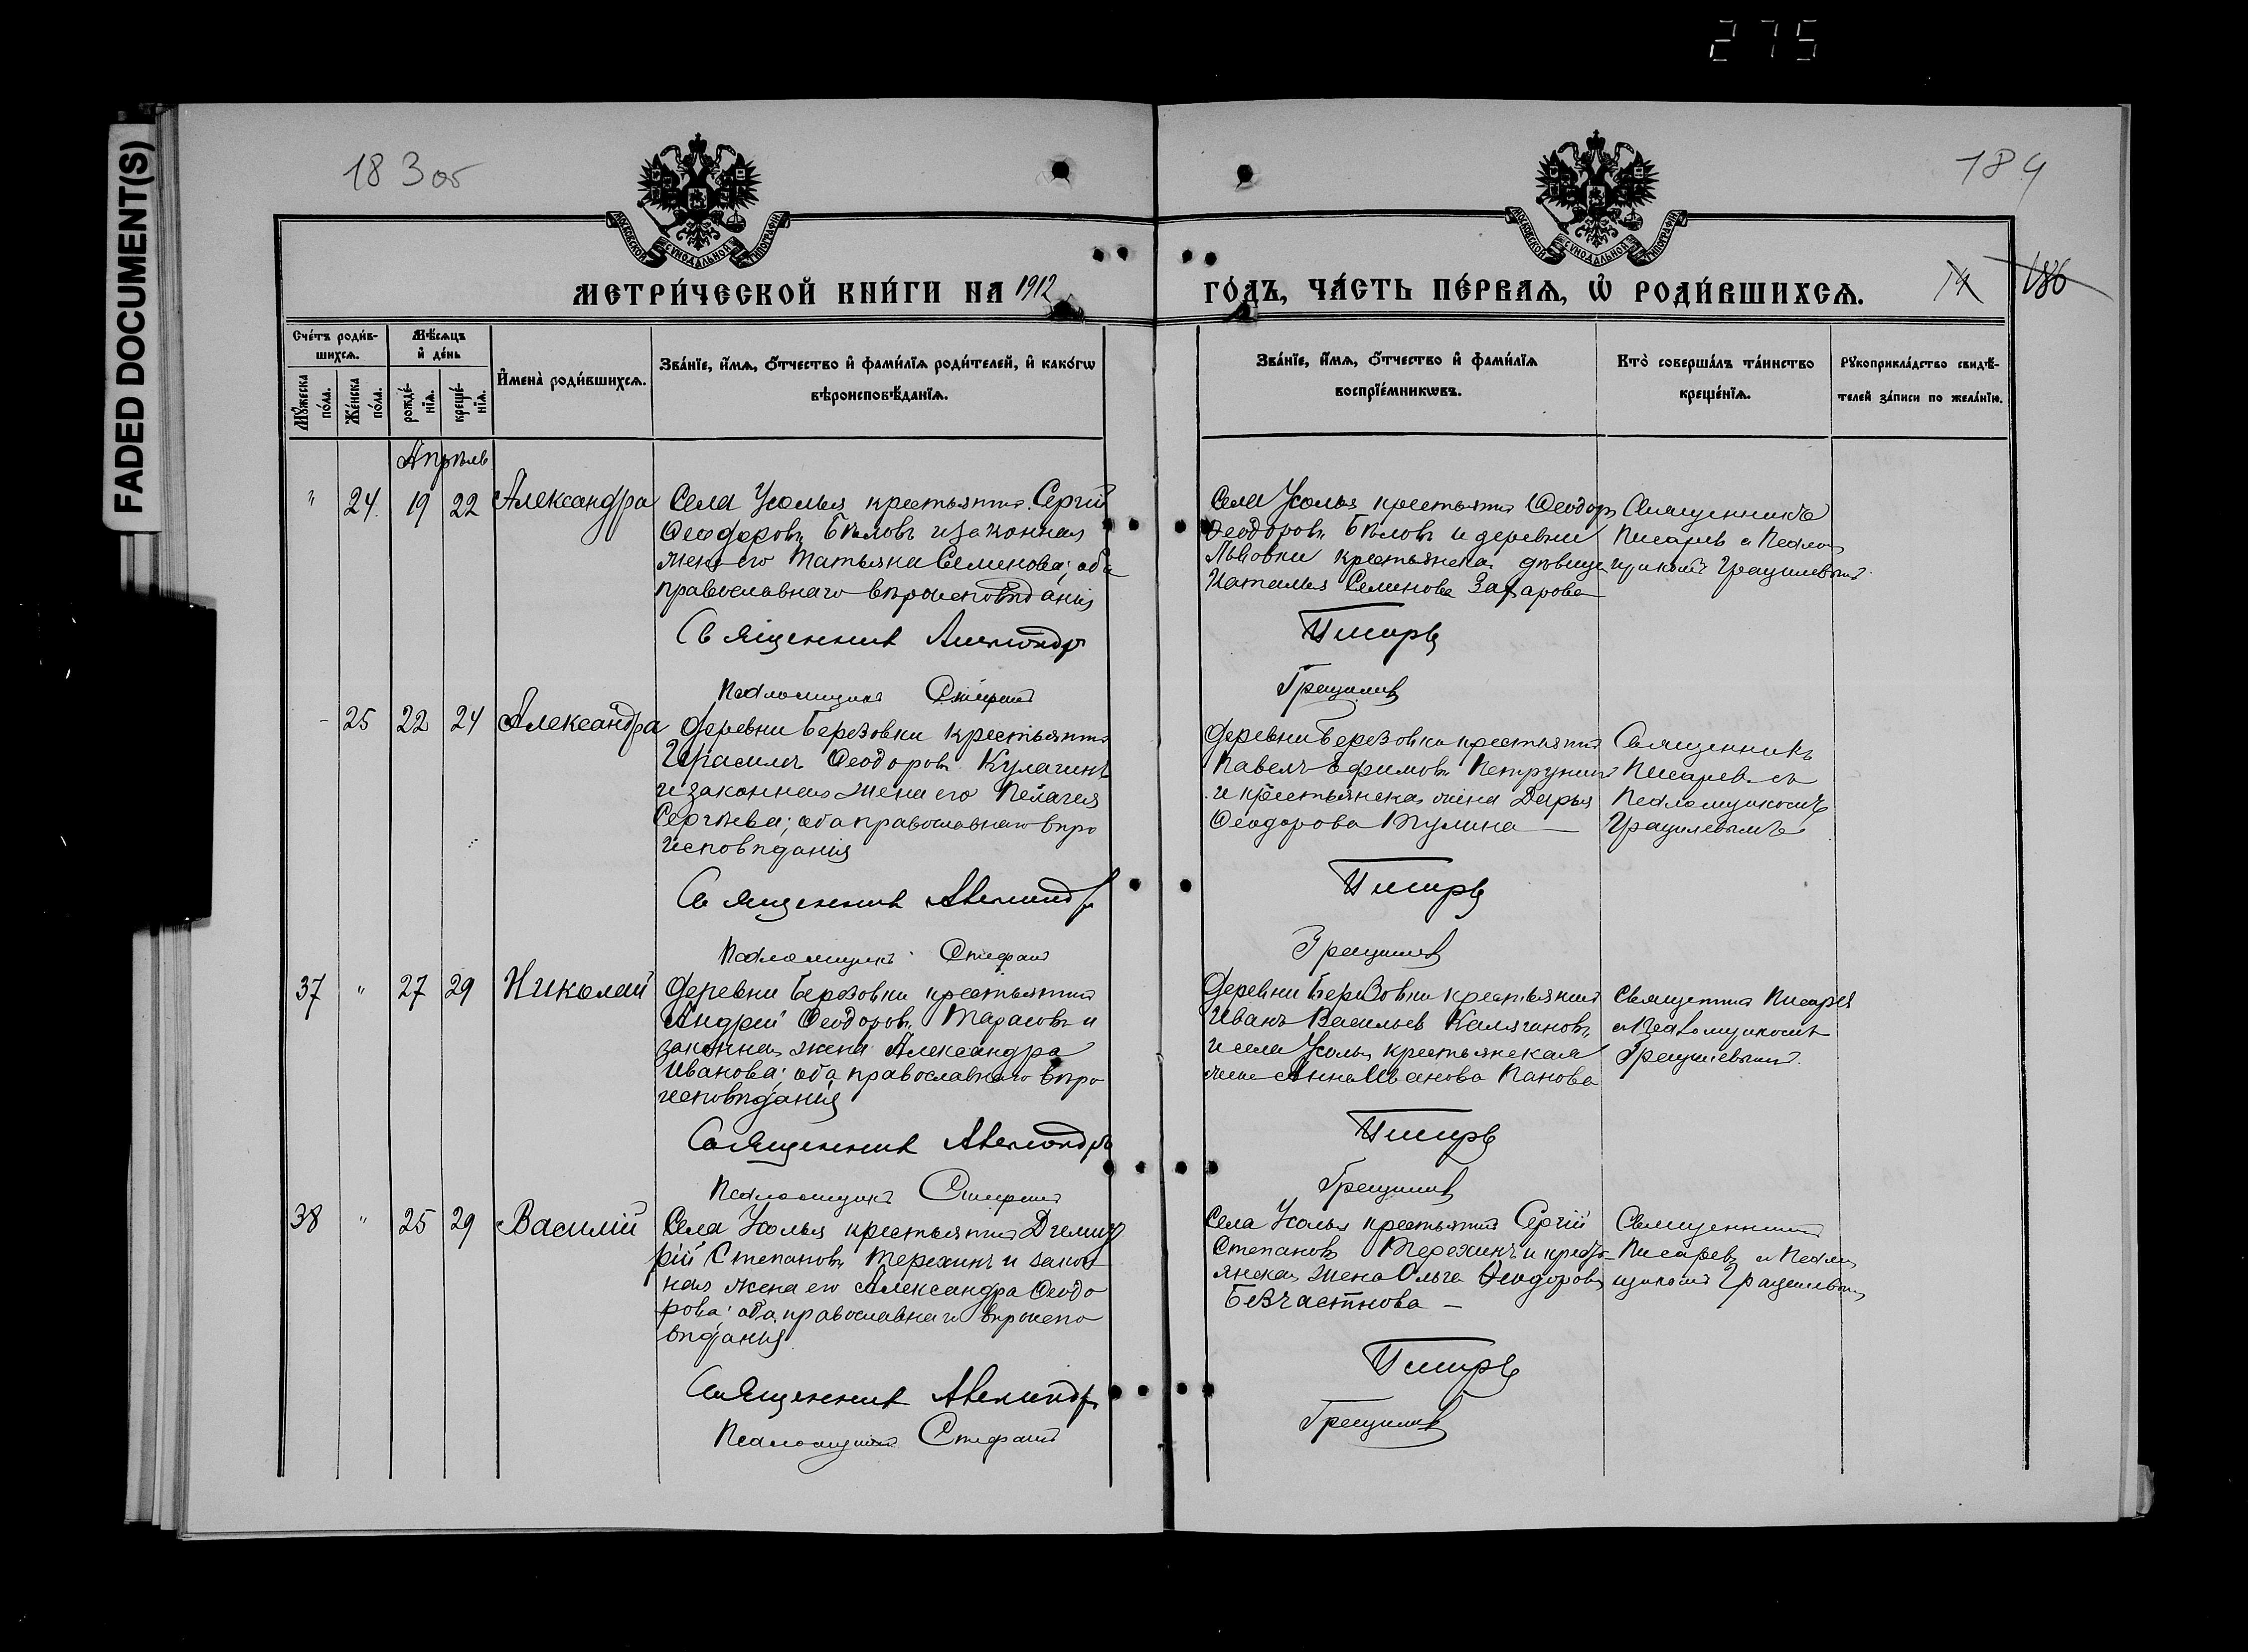 275
FADED DOCUMENT(S)
183 об
184
МОСКОВСКОЙ СѴНОДАЛЬНОЙ ТИПОГРАФІИ
МОСКОВСКОЙ СѴНОДАЛЬНОЙ ТИПОГРАФІИ
МЕТРИ́ЧЕСКОЙ КНИ́ГИ НА 1912
ГО́ДЪ, ЧА́СТЬ ПЕ́РВАѦ, Ѡ҆ РОДИ́ВШИХСѦ.
14 186
Сче́тъ роди́в-
шихсѧ.
Мѣ́сѧцъ
и҆ де́нь
И҆мена̀ роди́вшихсѧ.
Зва́нїе, и҆́мѧ, ѻ҆́тчество и҆ фами́лїѧ роди́телей, и҆ како́гѡ
вѣроисповѣ́данїѧ.
Мꙋ́жеска
по́ла.
Же́нска
по́ла.
рожде́-
нїѧ.
креще́-
нїѧ.
Зва́нїе, и҆́мѧ, ѻ҆́тчество и҆ фами́лїѧ
воспрїе́мникѡвъ.
Кто̀ соверша́лъ та́инство
креще́нїѧ.
Рꙋкоприкла́дство свидѣ́-
телей за́писи по жела́нїю.
Апрѣль
" 24. 19 22 Александра
Села Усолья крестьянинъ Сергій
Ѳеодоровъ Бѣловъ и законная
жена его Татьяна Семенова; оба
православнаго вѣроисповѣданія
Священник Александр
Псаломщикъ Стефанъ
Села Усолья крестьянинъ Ѳеодоръ
Ѳеодоровъ Бѣловъ и деревни
Львовки крестьянская дѣвица
Наталья Семенова Захарова
Писарев
Грацилев
Священникъ
Писарев с Псалом
щикомъ Грацилевымъ.
- 25 22 24 Александра
деревни Березовки крестьянинъ
Герасимъ Ѳеодоровъ Кулагинъ
и законная жена его Пелагея
Сергѣева; оба православнаго вѣро
исповѣданія
Священник Александр
Псаломщикъ Стефанъ
деревни Березовки крестьянинъ
Павелъ Ефимовъ Петрунинъ
и крестьянская жена Дарья
Ѳеодорова Тулина —
Писарев
Грацилев
Священникъ
Писарев съ
Псаломщикомъ
Грацилевымъ
37 " 27 29 Николай
деревни Березовки крестьянинъ
Андрей Ѳеодоровъ Тарасовъ и
законная жена Александра
Иванова; оба православнаго вѣро
исповѣданія
Священник Александр
Псаломщикъ Стефанъ
деревни Березовки крестьянинъ
Иванъ Васильев Калягановъ
и села Усолья крестьянская
жена Анна Иванова Панова
Писарев
Грацилев
Священникъ Писарев
с Псаломщикомъ
Грацилевымъ.
38 " 25 29 Василій
Села Усолья крестьянинъ Димит
рій Степановъ Терехинъ и закон
ная жена его Александра Ѳеодо
рова; оба православнаго вѣроиспо
вѣданія
Священник Александр
Псаломщикъ Стефанъ
Села Усолья крестьянинъ Сергій
Степановъ Терехинъ и кресть
янская жена Ольга Ѳеодорова
Безчастнова —
Писарев
Грацилев
Священникъ
Писаревъ с Псалом
щикомъ Грацилевымъ